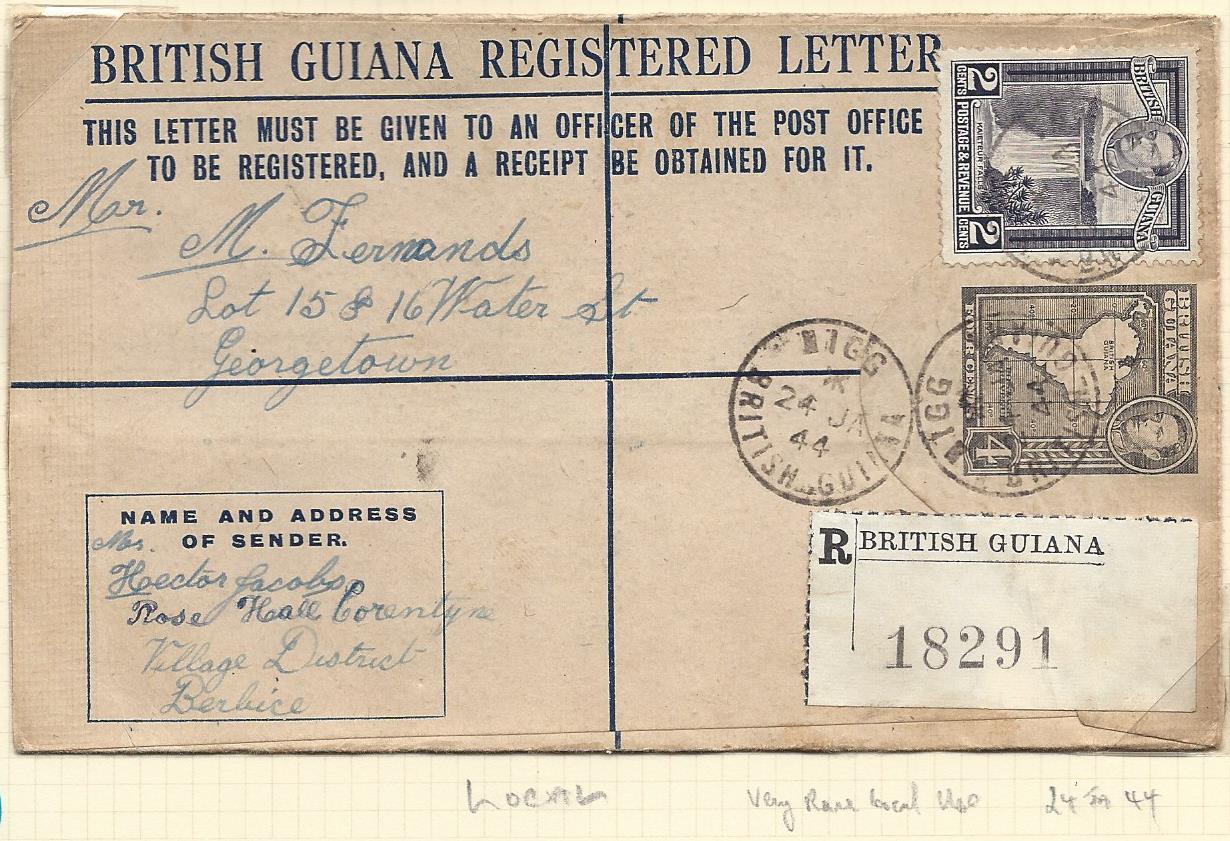 BRITISH GUIANA REGISTERED LETTER
THIS LETTER MUST BE GIVEN TO AN OFFICER OF THE POST OFFICE
TO BE REGISTERED, AND A RECEIPT BE OBTAINED FOR IT.
Mr.
M. Fernands
Lot 15 & 16 Water St
Georgetown
BRITISH GUIANA
KAIETEUR FALLS
2 CENTS POSTAGE & REVENUE 2 CENTS
BRITISH GUIANA
BRITISH GUIANA
4
NIGG
24 JA
44
BRITISH GUIANA
NIGG
44
NAME AND ADDRESS
OF SENDER.
Mrs.
Hector Jacobs
Rose Hall Corentyne
Village District
Berbice
R BRITISH GUIANA
18291
Very Rare Local Use 24 Jan 44